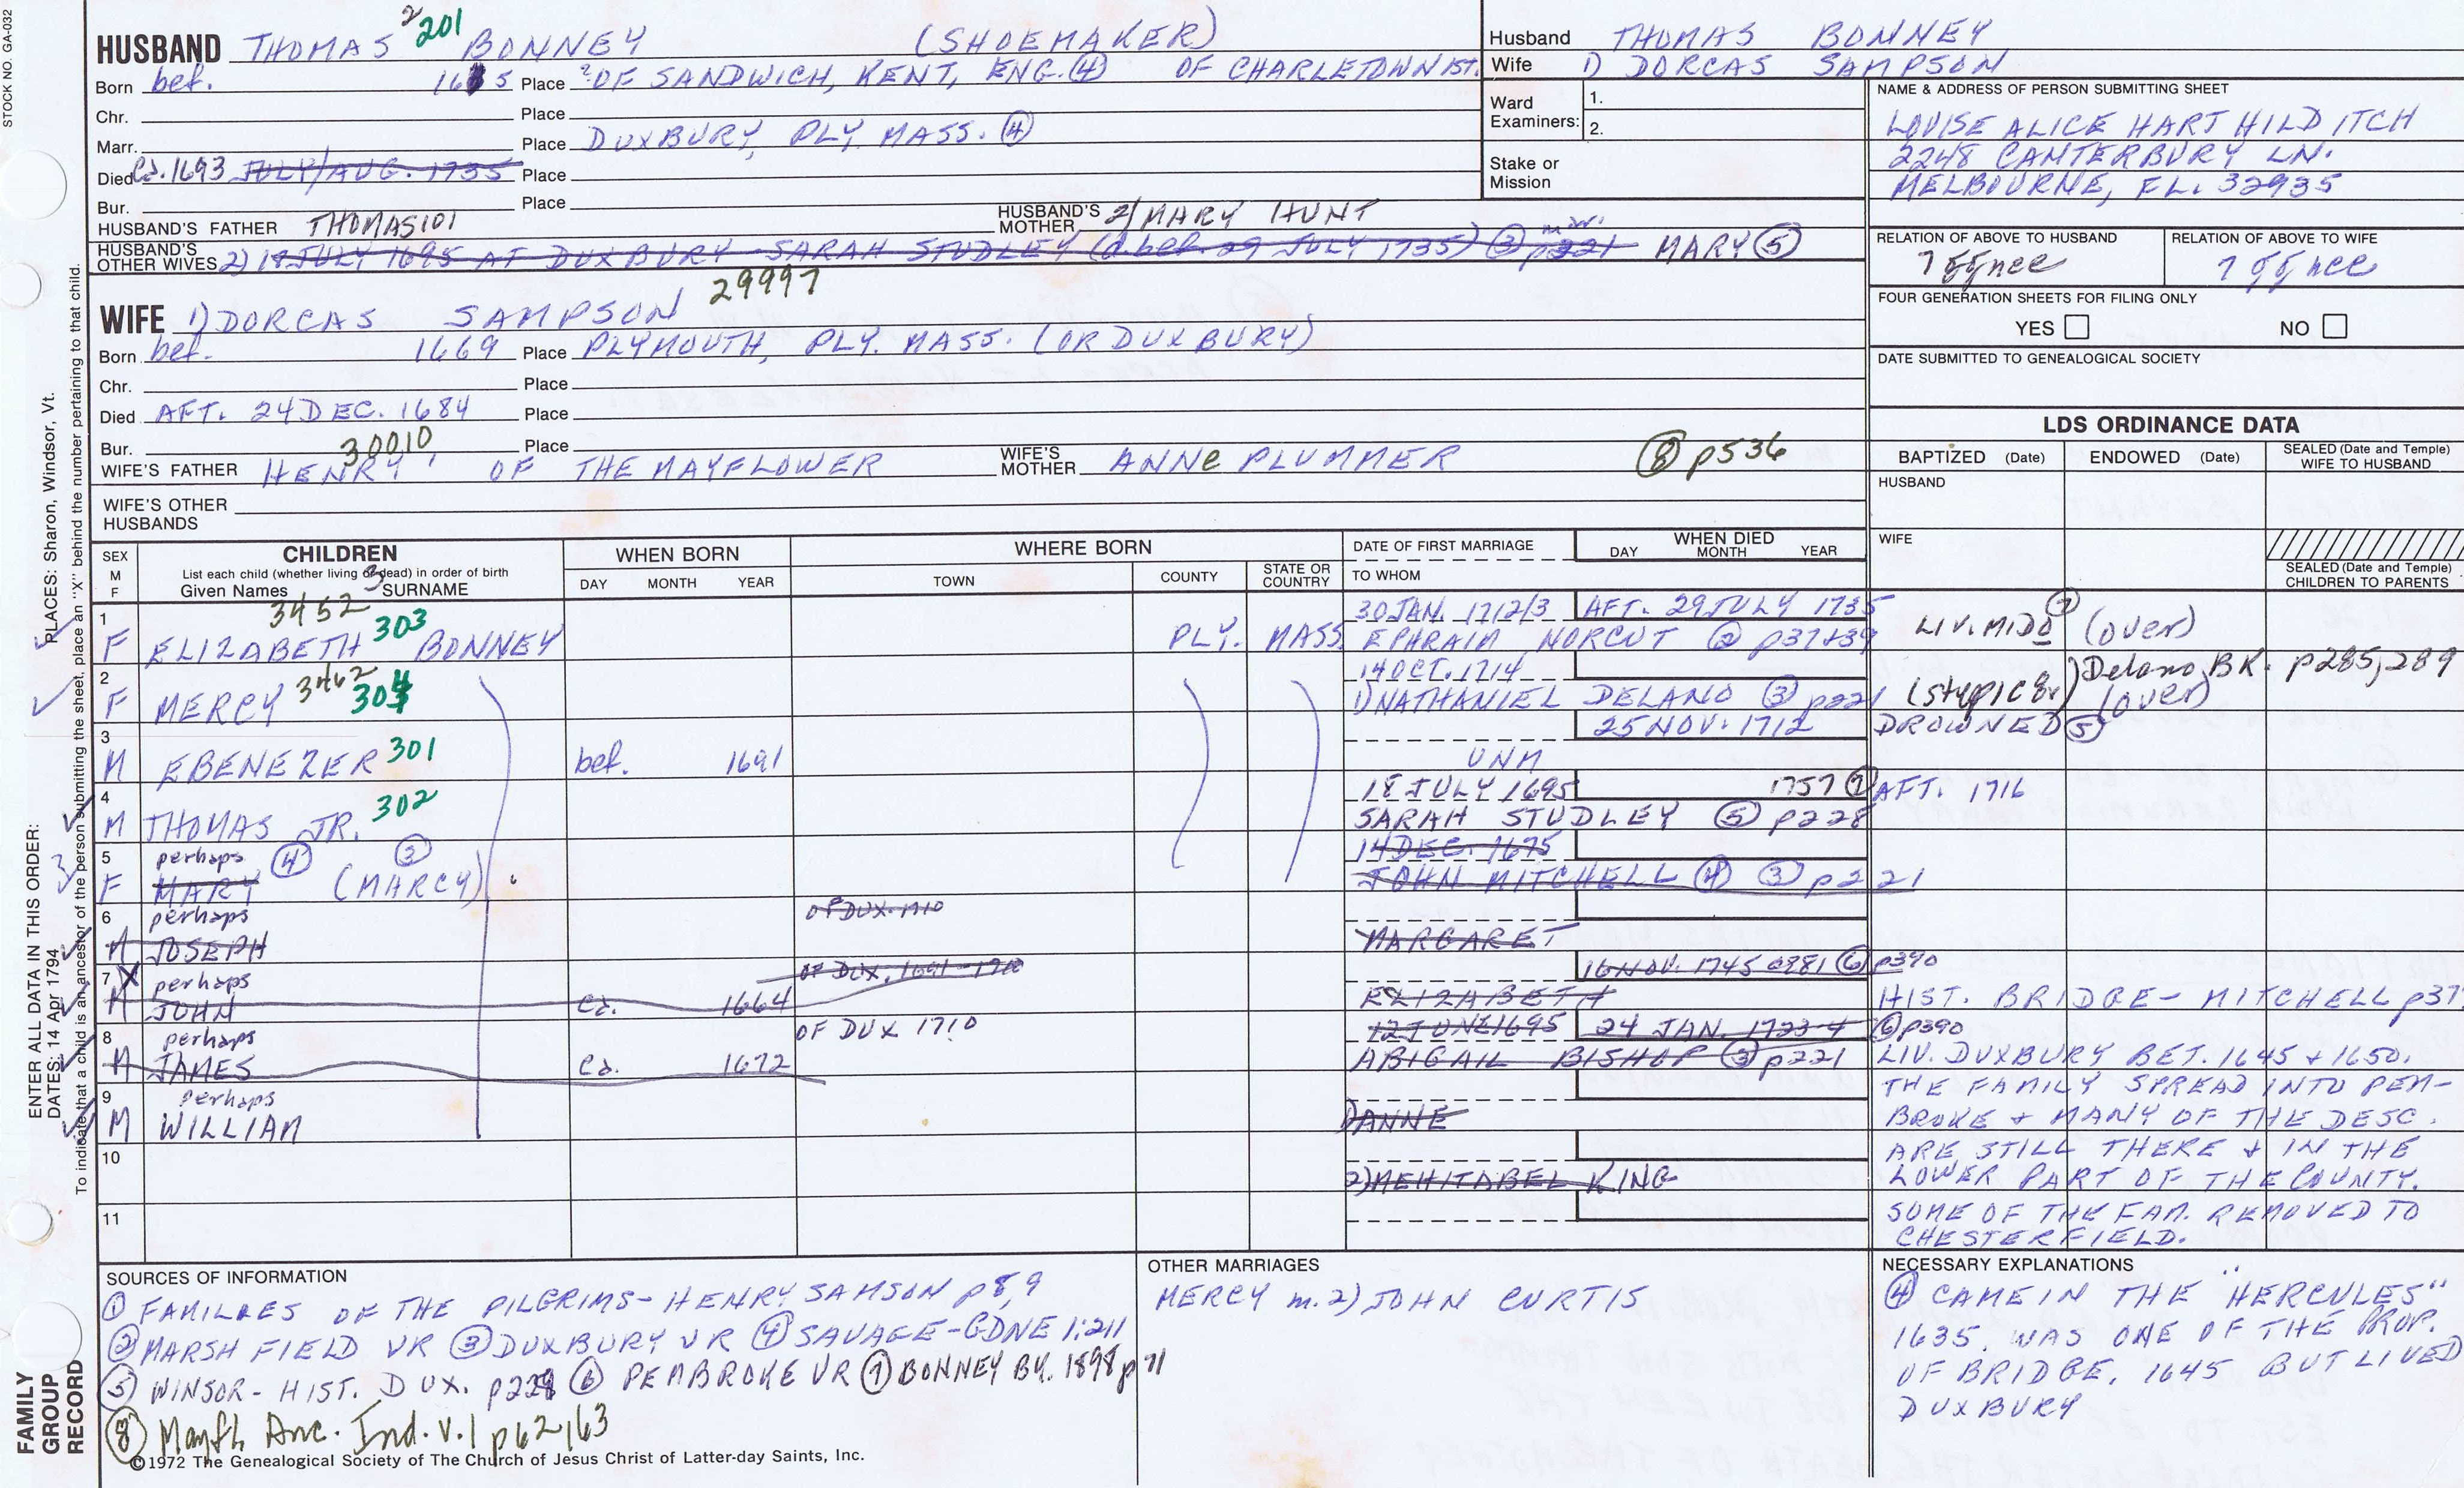 STOCK NO. GA-032
HUSBAND THOMAS 2 201 BONNEY (SHOEMAKER)
Born bef. Place ? OF SANDWICH, KENT, ENG. ④ OF CHARLETOWN 1ST.
Chr. Place
Marr. Place DUXBURY, PLY. MASS. ④
Died Ca. 1693 JULY/AUG. 1735 Place
Bur. Place
HUSBAND'S FATHER THOMAS 101 HUSBAND'S MOTHER 2/ MARY HUNT
HUSBAND'S OTHER WIVES 2) 18 JULY 1695 AT DUXBURY SARAH STUDLEY (d. bef. 29 JULY 1735) ③ p221 MARY ⑤
Husband THOMAS BONNEY
Wife 1) DORCAS SAMPSON
Ward Examiners: 1.
2.
Stake or Mission
NAME & ADDRESS OF PERSON SUBMITTING SHEET
LOUISE ALICE HART HILDITCH
2248 CANTERBURY LN.
MELBOURNE, FL. 32935
RELATION OF ABOVE TO HUSBAND RELATION OF ABOVE TO WIFE
FOUR GENERATION SHEETS FOR FILING ONLY
YES NO
DATE SUBMITTED TO GENEALOGICAL SOCIETY
29997
WIFE 1) DORCAS SAMPSON
Born bef. 1669 Place PLYMOUTH, PLY. MASS. (OR DUXBURY)
Chr. Place
Died AFT. 24 DEC. 1684 Place
Bur. Place
30010
WIFE'S FATHER HENRY OF THE MAYFLOWER WIFE'S MOTHER ANNe PLUMMER ⑧ p536
WIFE'S OTHER HUSBANDS
LDS ORDINANCE DATA
BAPTIZED (Date) ENDOWED (Date) SEALED (Date and Temple) WIFE TO HUSBAND
HUSBAND
WIFE
SEALED (Date and Temple) CHILDREN TO PARENTS
SEX M F
CHILDREN
List each child (whether living or dead) in order of birth
Given Names SURNAME 3
WHEN BORN DAY MONTH YEAR
WHERE BORN TOWN COUNTY STATE OR COUNTRY
DATE OF FIRST MARRIAGE
TO WHOM
WHEN DIED DAY MONTH YEAR
1 3452 30 JAN. 1712/3 AFT. 29 JULY 1735
F ELIZABETH 303 BONNEY PLY. MASS. EPHRAIM NORCUT ② p37+39 (over)
2 3462 14 OCT. 1714
F MERCY 304 1) NATHANIEL DELANO ③ p221 Delano BK. p285, 289 (over)
3 25 NOV. 1712 DROWNED ⑤
M EBENEZER 301 bef. 1691 UNM
4 18 JULY 1695 1757 ⑦ AFT. 1716
M THOMAS JR. 302 SARAH STUDLEY ⑤ p228
5 perhaps ④ ③ 14 DEC. 1675
F MARY (MARCY) JOHN MITCHELL ④ ③ p221
6 perhaps OF DUX. 1710
M JOSEPH MARGARET
7 X perhaps OF DUX. 1691-1710 16 NOV. 1745 ae81 ⑥ p390
M JOHN ca. 1664 ELIZABETH HIST. BRIDGE- MITCHELL p37
8 perhaps OF DUX 1710 12 JUNE 1695 24 JAN. 1723-4 ⑥ p390
M JAMES ca. 1672 ABIGAIL BISHOP ③ p221
9 perhaps
M WILLIAM 1) ANNE
10
2) MEHITABEL KING
11
LIV. DUXBURY BET. 1645 + 1650.
THE FAMILY SPREAD INTO PEM-
BROKE + MANY OF THE DESC.
ARE STILL THERE + IN THE
LOWER PART OF THE COUNTY.
SOME OF THE FAM. REMOVED TO
CHESTERFIELD.
SOURCES OF INFORMATION
① FAMILIES OF THE PILGRIMS- HENRY SAMSON p8,9
② MARSHFIELD VR ③ DUXBURY VR ④ SAVAGE-GDNE 1:211
⑤ WINSOR- HIST. DUX. ⑥ PEMBROKE VR ⑦ BONNEY BY. 1898 p71
⑧ Mayfl. Anc. Ind. v.1 p62,63
OTHER MARRIAGES
MERCY m. 2) JOHN CURTIS
NECESSARY EXPLANATIONS
④ CAME IN THE "HERCULES"
1635. WAS ONE OF THE PROP.
OF BRIDGE. 1645 BUT LIVED
DUXBURY
©1972 The Genealogical Society of The Church of Jesus Christ of Latter-day Saints, Inc.
FAMILY GROUP RECORD
ENTER ALL DATA IN THIS ORDER:
DATES: 14 Apr 1794
PLACES: Sharon, Windsor, Vt.
To indicate that a child is an ancestor of the person submitting the sheet, place an "X" behind the number pertaining to that child.